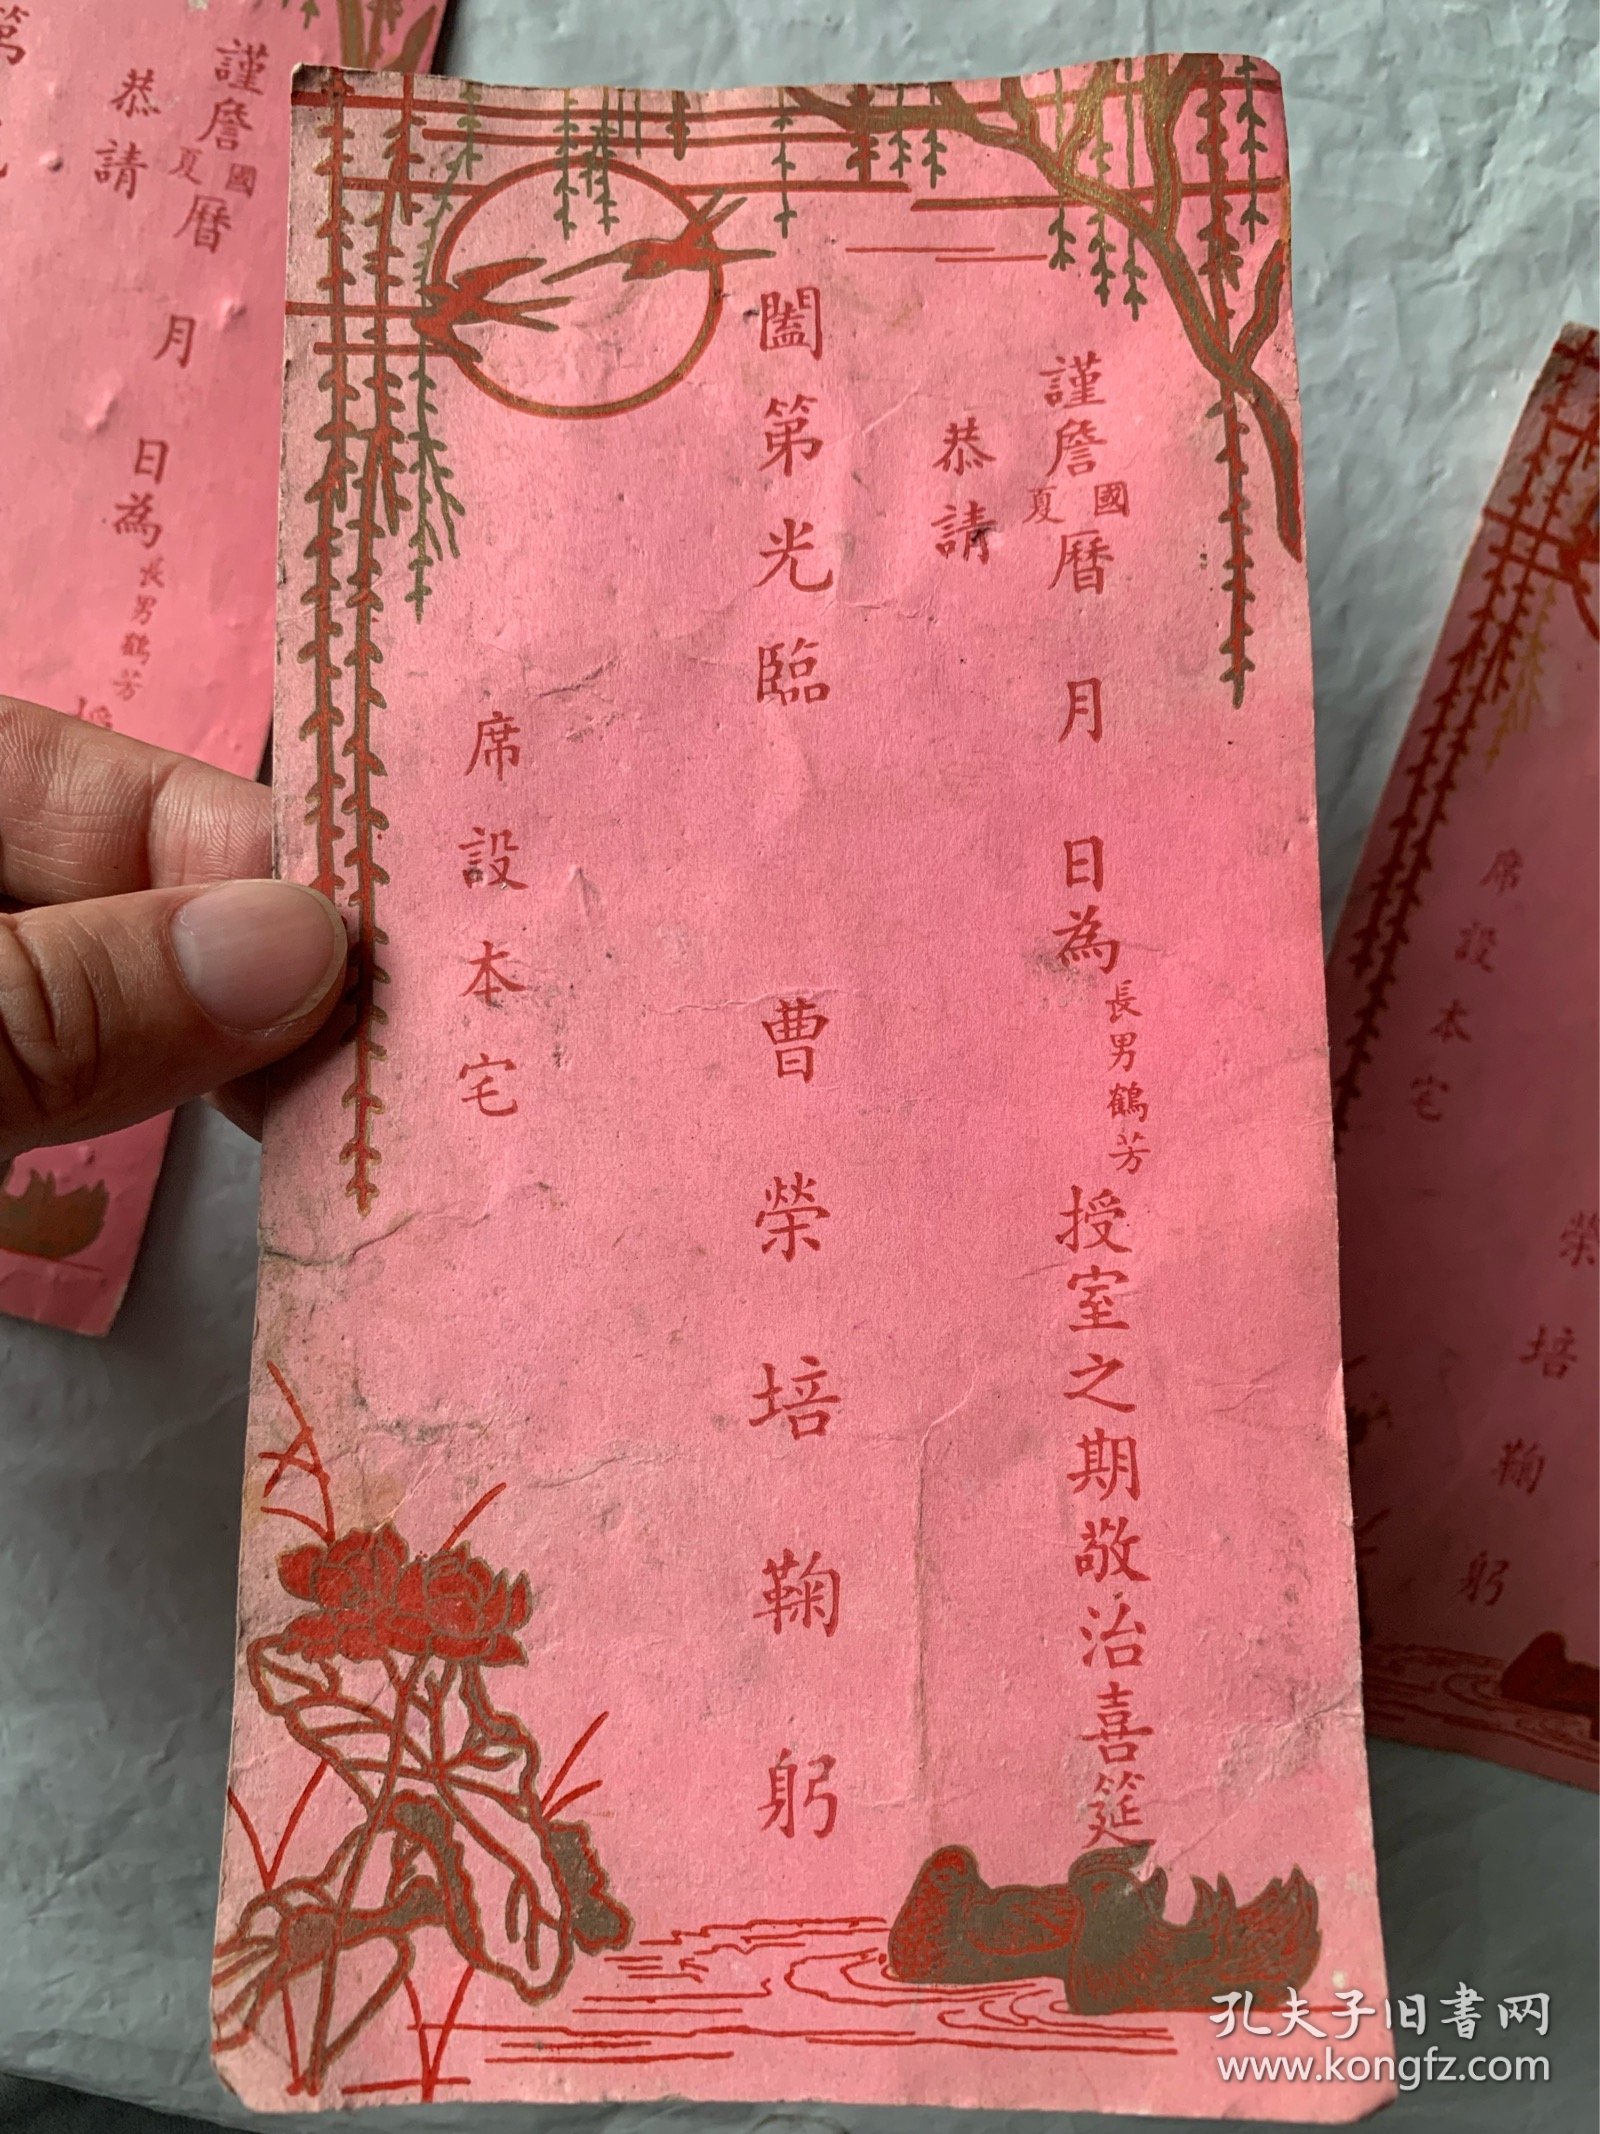 謹詹國夏曆　月　日為長男鶴芳授室之期敬治喜筵
恭請
闔第光臨
曹榮培鞠躬
席設本宅
謹詹國夏曆　月　日為長男鶴芳授
恭請
第
席設本宅
榮培鞠躬
孔夫子旧書网
www.kongfz.com